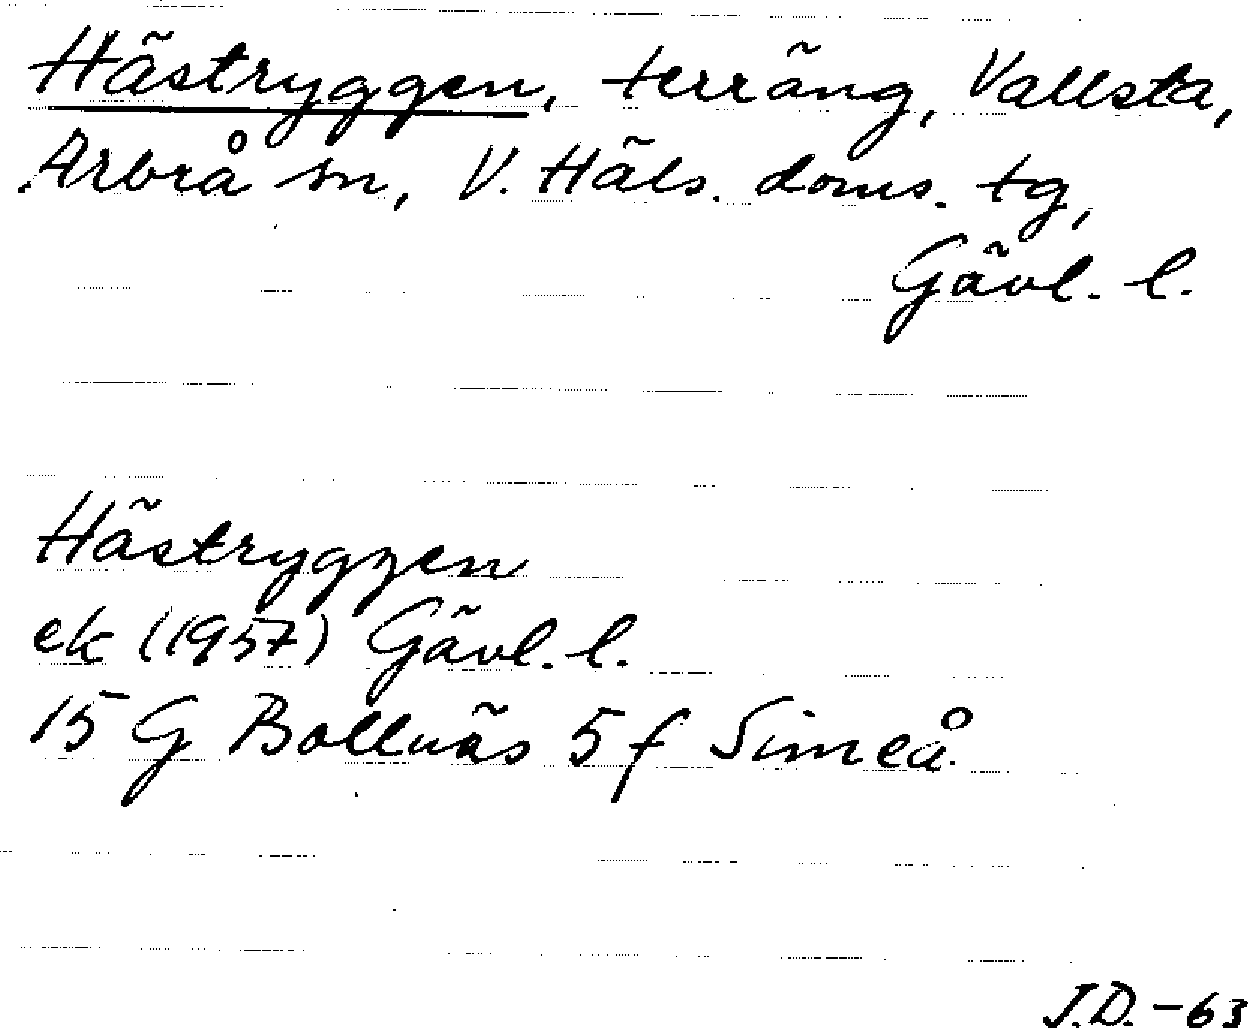 Hästryggen, terräng, Vallsta,
Arbrå sn, V. Häls. doms. tg,
Gävl. l.
Hästryggen
ek (1957) Gävl. l.
15 G Bollnäs 5 f Simeå
J.D. -63